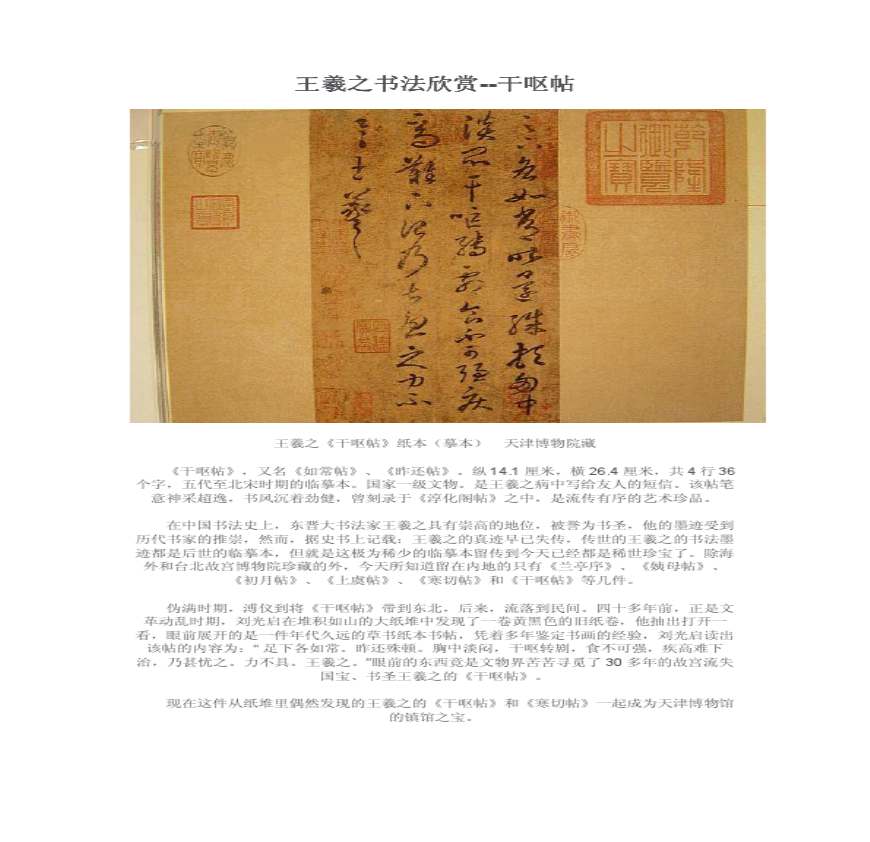 王羲之书法欣赏--干呕帖
足下各如常昨還殊頓匈中
淡悶干嘔轉劇食不可強疾
高難下治乃甚憂之力不
具王羲之
乾隆御覽之寶
王羲之《干呕帖》纸本（摹本） 天津博物院藏
《干呕帖》，又名《如常帖》、《昨还帖》。纵 14.1 厘米，横 26.4 厘米，共 4 行 36
个字，五代至北宋时期的临摹本。国家一级文物。是王羲之病中写给友人的短信。该帖笔
意神采超逸，书风沉着劲健，曾刻录于《淳化阁帖》之中，是流传有序的艺术珍品。
在中国书法史上，东晋大书法家王羲之具有崇高的地位，被誉为书圣，他的墨迹受到
历代书家的推崇，然而，据史书上记载：王羲之的真迹早已失传，传世的王羲之的书法墨
迹都是后世的临摹本，但就是这极为稀少的临摹本留传到今天已经都是稀世珍宝了。除海
外和台北故宫博物院珍藏的外，今天所知道留在内地的只有《兰亭序》、《姨母帖》、
《初月帖》、《上虞帖》、《寒切帖》和《干呕帖》等几件。
伪满时期，溥仪到将《干呕帖》带到东北，后来，流落到民间。四十多年前，正是文
革动乱时期，刘光启在堆积如山的大纸堆中发现了一卷黄黑色的旧纸卷，他抽出打开一
看，眼前展开的是一件年代久远的草书纸本书帖，凭着多年鉴定书画的经验，刘光启读出
该帖的内容为：“ 足下各如常。昨还殊顿。胸中淡闷，干呕转剧，食不可强，疾高难下
治，乃甚忧之。力不具。王羲之。”眼前的东西竟是文物界苦苦寻觅了 30 多年的故宫流失
国宝、书圣王羲之的《干呕帖》。
现在这件从纸堆里偶然发现的王羲之的《干呕帖》和《寒切帖》一起成为天津博物馆
的镇馆之宝。